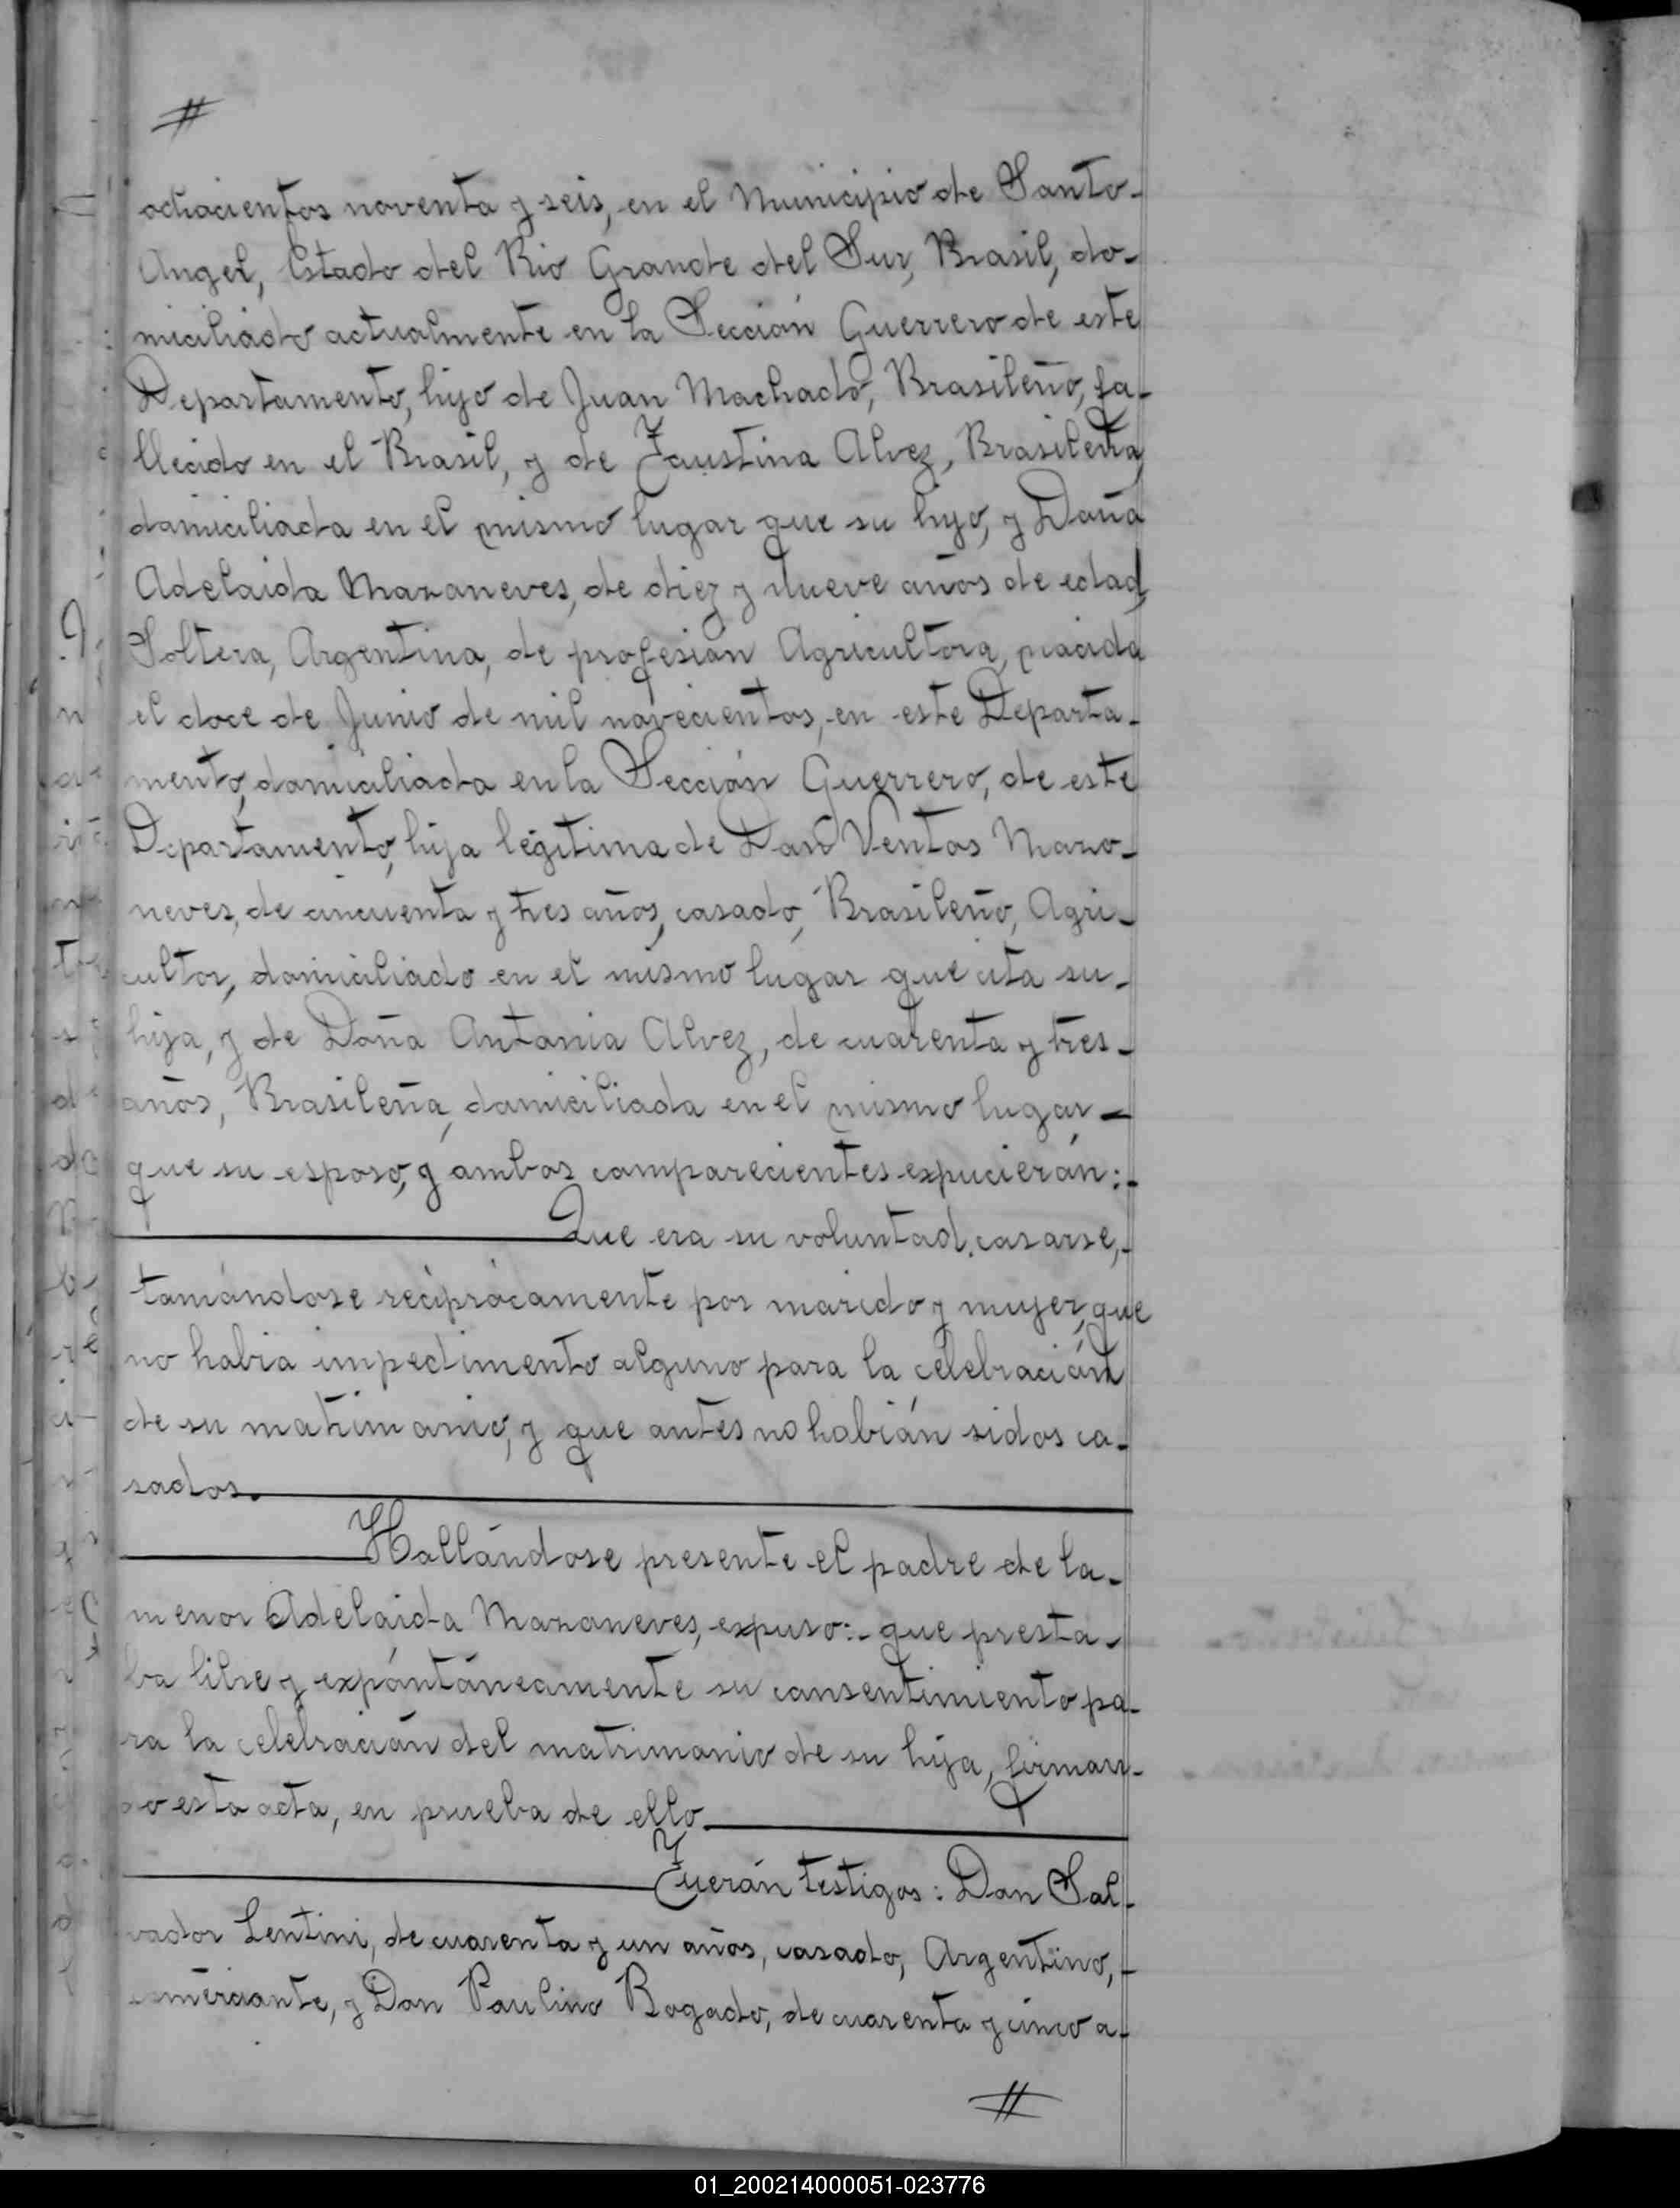 #
ochocientos noventa y seis, en el Municipio de Santo-
Angel, Estado del Rio Grande del Sur, Brasil, do-
miciliado actualmente en la Sección Guerrero de este
Departamento, hijo de Juan Machado, Brasileño, fa-
llecido en el Brasil, y de Faustina Alvez, Brasileña,
domiciliada en el mismo lugar que su hijo, y Doña
Adelaida Mazaneves, de diez y nueve años de edad,
Soltera, Argentina, de profesión Agricultora, nacida
el doce de Junio de mil novecientos, en este Departa-
mento, domiciliada en la Sección Guerrero, de este
Departamento, hija legítima de Don Ventos Mazo-
neves, de cincuenta y tres años, casado, Brasileño, Agri-
cultor, domiciliado en el mismo lugar que cita su-
hija, y de Doña Antonia Alvez, de cuarenta y tres-
años, Brasileña, domiciliada en el mismo lugar-
que su esposo, y ambos comparecientes expucierón:-
Que era su voluntad casarse,-
tomándose recíprocamente por marido y mujer, que
no habia impedimento alguno para la celebración
de su matrimonio, y que antes no habián sidos ca-
sados.
Hallándose presente el padre de la-
menor Adelaida Mazaneves, expuso:- que presta-
ba libre y expóntáneamente su consentimiento pa-
ra la celebración del matrimonio de su hija, firman-
do esta acta, en prueba de ello.
Fuerón testigos: Don Sal-
vador Lentini, de cuarenta y un años, casado, Argentino,-
comerciante, y Don Paulino Bogado, de cuarenta y cinco a-
#
01_200214000051-023776